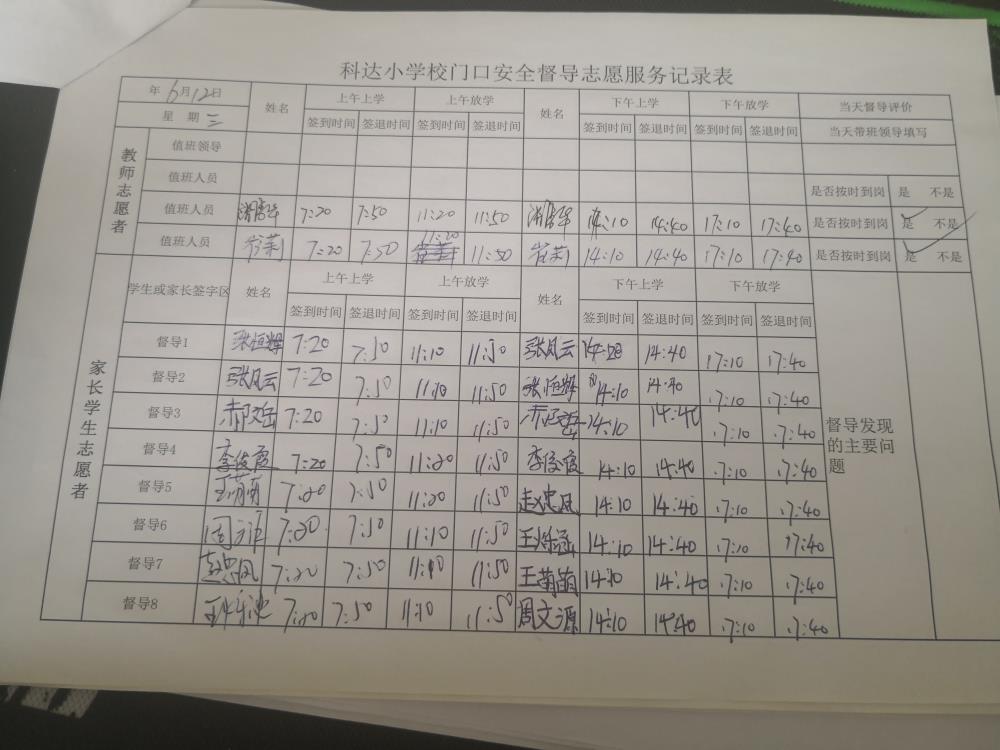 科达小学校门口安全督导志愿服务记录表
年 6月12日 姓名 上午上学 上午放学 姓名 下午上学 下午放学 当天督导评价
星 期 三 签到时间 签退时间 签到时间 签退时间 签到时间 签退时间 签到时间 签退时间 当天带班领导填写
教师志愿者
值班领导
值班人员 是否按时到岗 是 不是
值班人员 7:20 7:50 11:20 11:50 14:10 14:40 17:10 17:40 是否按时到岗 是 不是
值班人员 7:20 7:50 11:20 11:50 14:10 14:40 17:10 17:40 是否按时到岗 是 不是
家长学生志愿者
学生或家长签字区 姓名 上午上学 上午放学 姓名 下午上学 下午放学
签到时间 签退时间 签到时间 签退时间 签到时间 签退时间 签到时间 签退时间
督导1 张恒辉 7:20 7:50 11:10 11:50 张凤云 14:40 17:10 17:40
督导2 张凤云 7:20 7:50 11:10 11:50 张恒辉 14:10 14:40 17:10 17:40
督导3 7:20 7:50 11:10 11:50 14:10 14:40 17:10 17:40
督导4 李俊霞 7:20 7:50 11:20 11:50 李俊霞 14:10 14:40 17:10 17:40
督导5 王萌萌 7:20 7:50 11:20 11:50 赵忠凤 14:10 14:40 17:10 17:40
督导6 7:20 7:50 11:10 11:50 14:10 14:40 17:10 17:40
督导7 赵忠凤 7:20 7:50 11:10 11:50 王萌萌 14:10 14:40 17:10 17:40
督导8 7:20 7:50 11:10 11:50 周文源 14:10 14:40 17:10 17:40
督导发现的主要问题